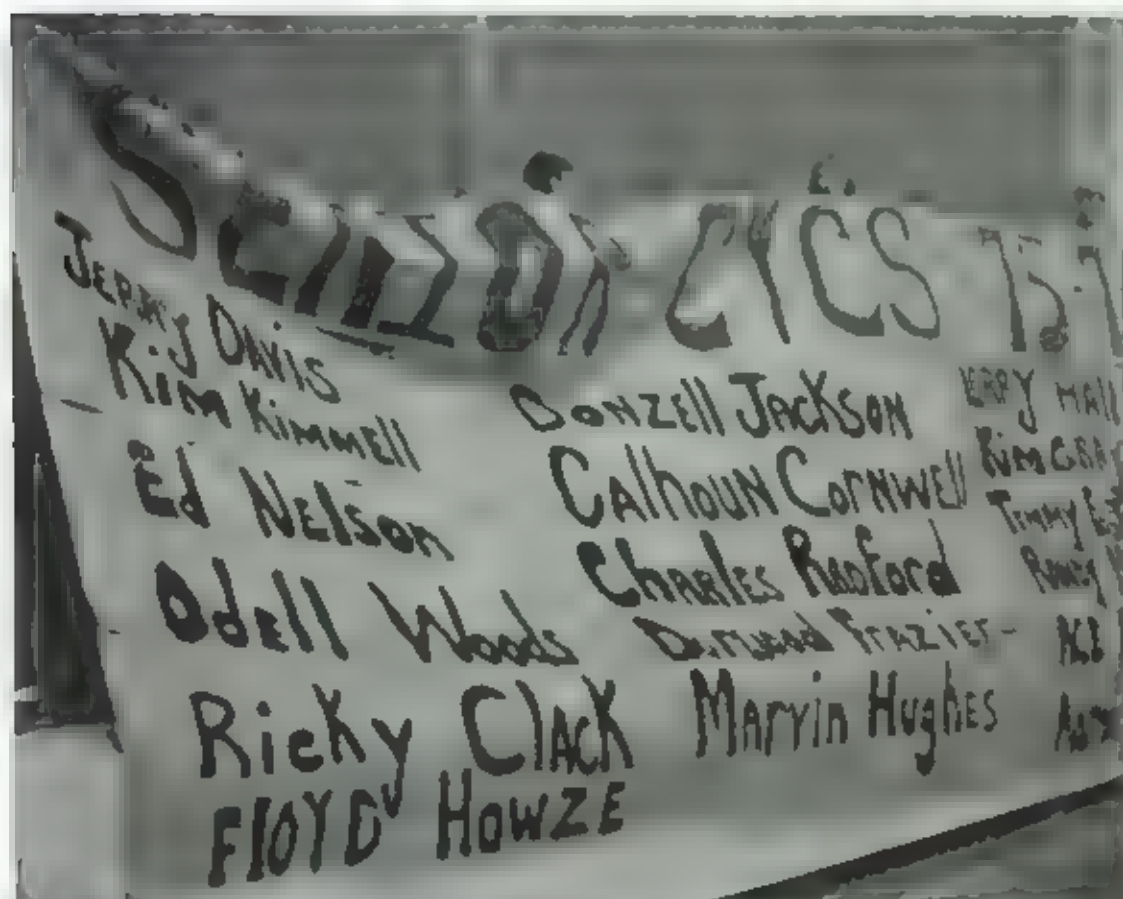 SENIOR CYCS 75-7
JERRY DAVIS
Kim Kimmell
Ed Nelson
Odell Woods
Ricky Clack
FLOYD HOWZE
DONZEll JACKSON
CAlhoun CORNWEll
ChARLES RADFord
FRAZIER
Marvin Hughes
HAll
Kim GRA
TIMMY